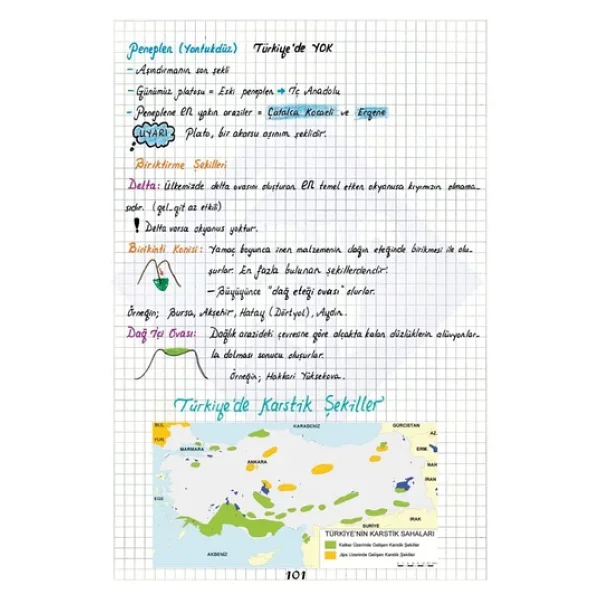 Peneplen (Yontukdüz) Türkiye'de YOK
- Aşındırmanın son şekli
- Günümüz platosu = Eski peneplen → İç Anadolu
- Peneplene en yakın araziler = Çatalca Kocaeli ve Ergene
UYARI Plato, bir akarsu aşınım şeklidir.
Biriktirme Şekilleri
Delta: Ülkemizde delta ovasını oluşturan en temel etken okyanusa kıyımızın olmama_
sıdır. (gel_git az etkili)
! Delta varsa okyanus yoktur.
Birikinti Konisi: Yamaç boyunca inen malzemenin dağın eteğinde birikmesi ile olu_
şurlar. En fazla bulunan şekillerdendir.
→ Büyüyünce "dağ eteği ovası" olurlar.
Örneğin; Bursa, Akşehir, Hatay (Dörtyol), Aydın.
Dağ İçi Ovası: Dağlık arazideki çevresine göre alçakta kalan düzlüklerin alüvyonlar_
la dolması sonucu oluşurlar.
Örneğin; Hakkari Yüksekova.
Türkiye'de Karstik Şekiller
BUL.
YUN.
KARADENİZ
GÜRCİSTAN
AZ.
MARMARA
ANKARA
ERM.
NAH.
İRAN
EGE
SURİYE
IRAK
AKDENİZ
TÜRKİYE'NİN KARSTİK SAHALARI
Kalker Üzerinde Gelişen Karstik Şekiller
Jips Üzerinde Gelişen Karstik Şekiller
101